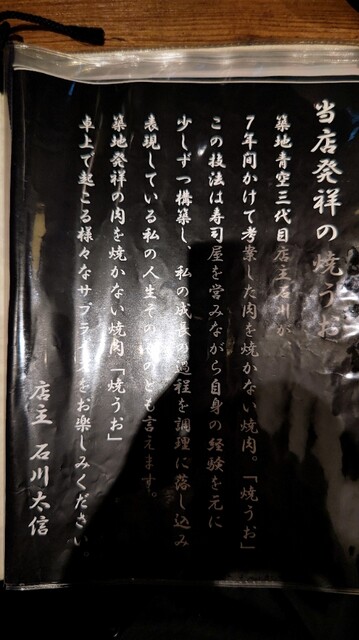 当店発祥の焼うお
築地青空三代目店主石川が
7年間かけて考案した肉を焼かない焼肉。「焼うお」
この技法は寿司屋を営みながら自身の経験を元に
少しずつ構築し、私の成長の過程を調理に落し込み
表現している私の人生そのものとも言えます。
築地発祥の肉を焼かない焼肉「焼うお」
卓上で起こる様々なサプライズをお楽しみください。
店主 石川太信